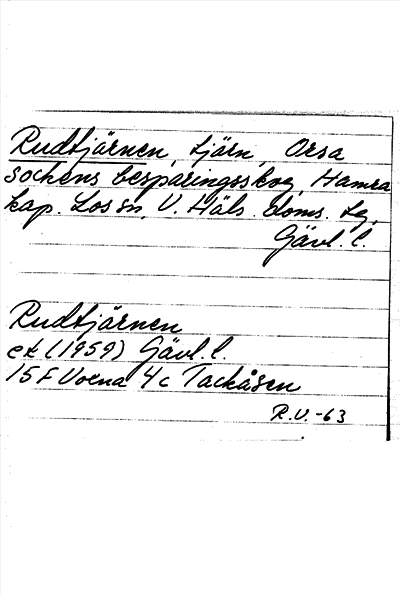 Rudtjärnen, tjärn, Orsa
sockens besparingsskog, Hamra
kap. Los sn, V. Häls. doms. tg,
Gävl. l.
Rudtjärnen
ek (1959) Gävl. l.
15 F Voxna 4c Tackåsen
R.V.-63